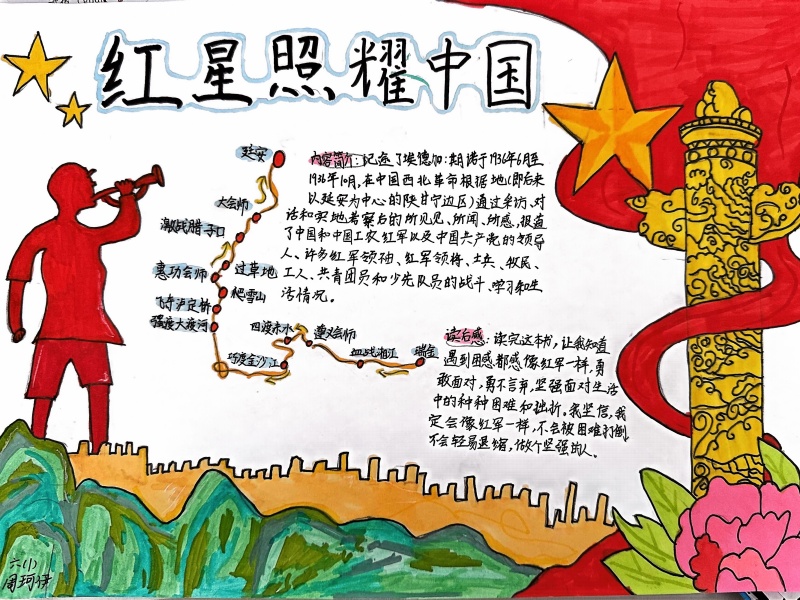 红星照耀中国
内容简介:记述了埃德加·斯诺于1936年6月至
1936年10月,在中国西北革命根据地(即后来
以延安为中心的陕甘宁边区)通过采访、对
话和实地考察后的所见见、所闻、所感,报道
了中国和中国工农红军以及中国共产党的领导
人、许多红军领袖、红军领将、士兵、牧民、
工人、共青团员和少先队员的战斗、学习和生
活情况。
延安
大会师
激战腊子口
惠功会师
过草地
爬雪山
飞夺泸定桥
强度大渡河
巧度金沙江
四渡赤水
遵义会师
血战湘江
瑞金
读后感:读完这本书,让我知道
遇到困惑都感像红军一样,勇
敢面对,勇不言弃,坚强面对生活
中的种种困难和挫折。我坚信,我
定会像红军一样,不会被困难打倒
不会轻易退缩,做个坚强的人。
六(1)
周珂